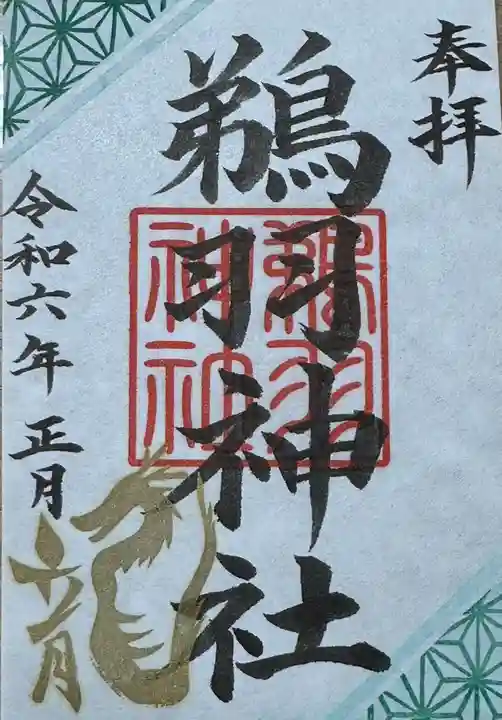 奉拝
鵜羽神社
鵜羽神社
令和六年 正月
龍